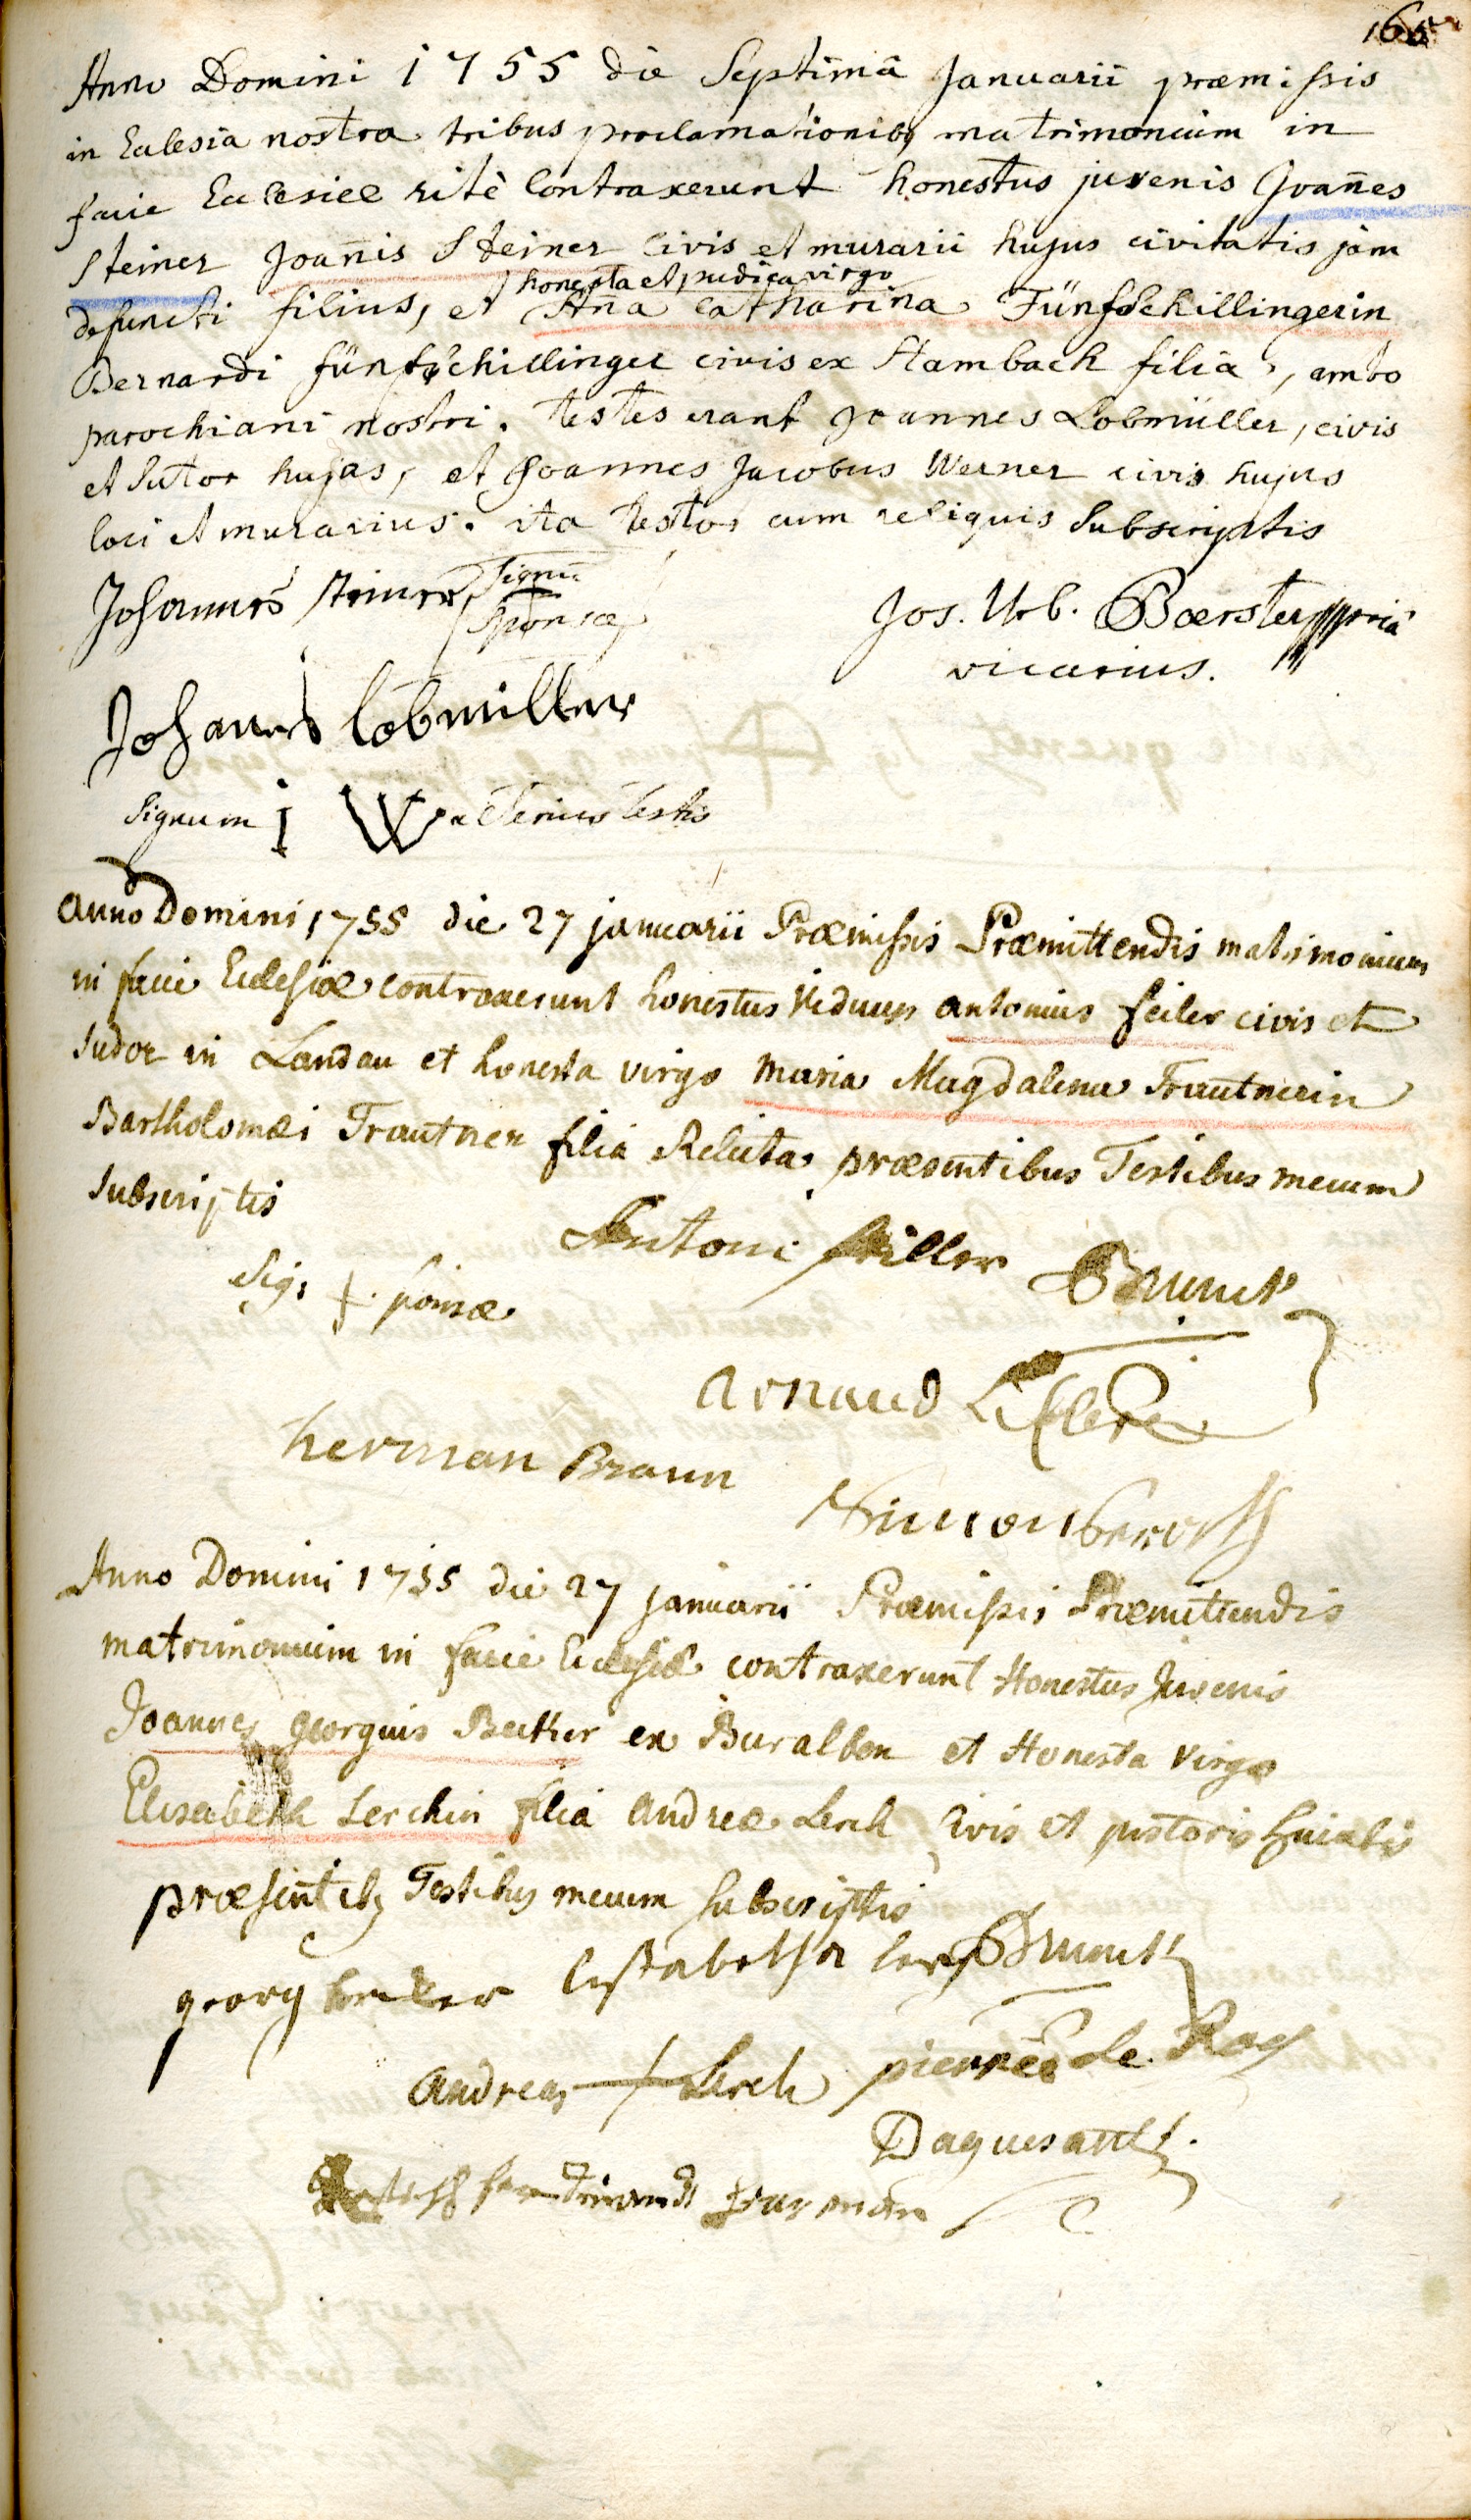 165
Anno Domini 1755 die Septimâ Januarii præmissis
in Ecclesia nostra tribus proclamationibꝫ matrimonium in
facie Ecclesiæ ritè Contraxerunt honestus juvenis Joañes
Steiner Joañis Steiner civis et murarii hujus civitatis jam
honesta et pudica virgo
defuncti filius, et Aña Catharina Fünfschillingerin
Bernardi fünfschillinger civis ex Stambach filia, ambo
parochiani nostri. testes erant Joannes Lobmüller, civis
et Sutor hujas, et Joannes Jacobus Werner civis hujus
loci et murarius. ita testor cum reliquis Subscriptis
Johannes Steiner, Signū
Sponsæ
Jos. Urb. Boerster ppriâ
vicarius.
Johannes lobmiller
Signum I W alterius testis
Anno Domini 1755 die 27 januarii Præmissis Præmittendis matrimonium
in facie Ecclesiæ contraxerunt honestus Viduus antonius feiler civis et
sudor in Landau et honesta virgo Maria Magdalena Trautnerin
Bartholomæi Trautner filia Relicta præsentibus Testibus mecum
subscriptis
Antoni
Sig: + sponsæ
arnaud
herman Braun
Simon
Anno Domini 1755 die 27 januarii Præmissis Præmittendis
matrimonium in facie Ecclesiæ contraxerunt Honestus Juvenis
Joannes georgius Becker ex Buralben et Honesta Virgo
Elisabetha Lerchin filia andreæ Lerch Civis et pistoris huiatis
præsentibꝫ Testibꝫ mecum subscriptis
georg becker
andreas + Lerch pierre Le Roy
Daguesant